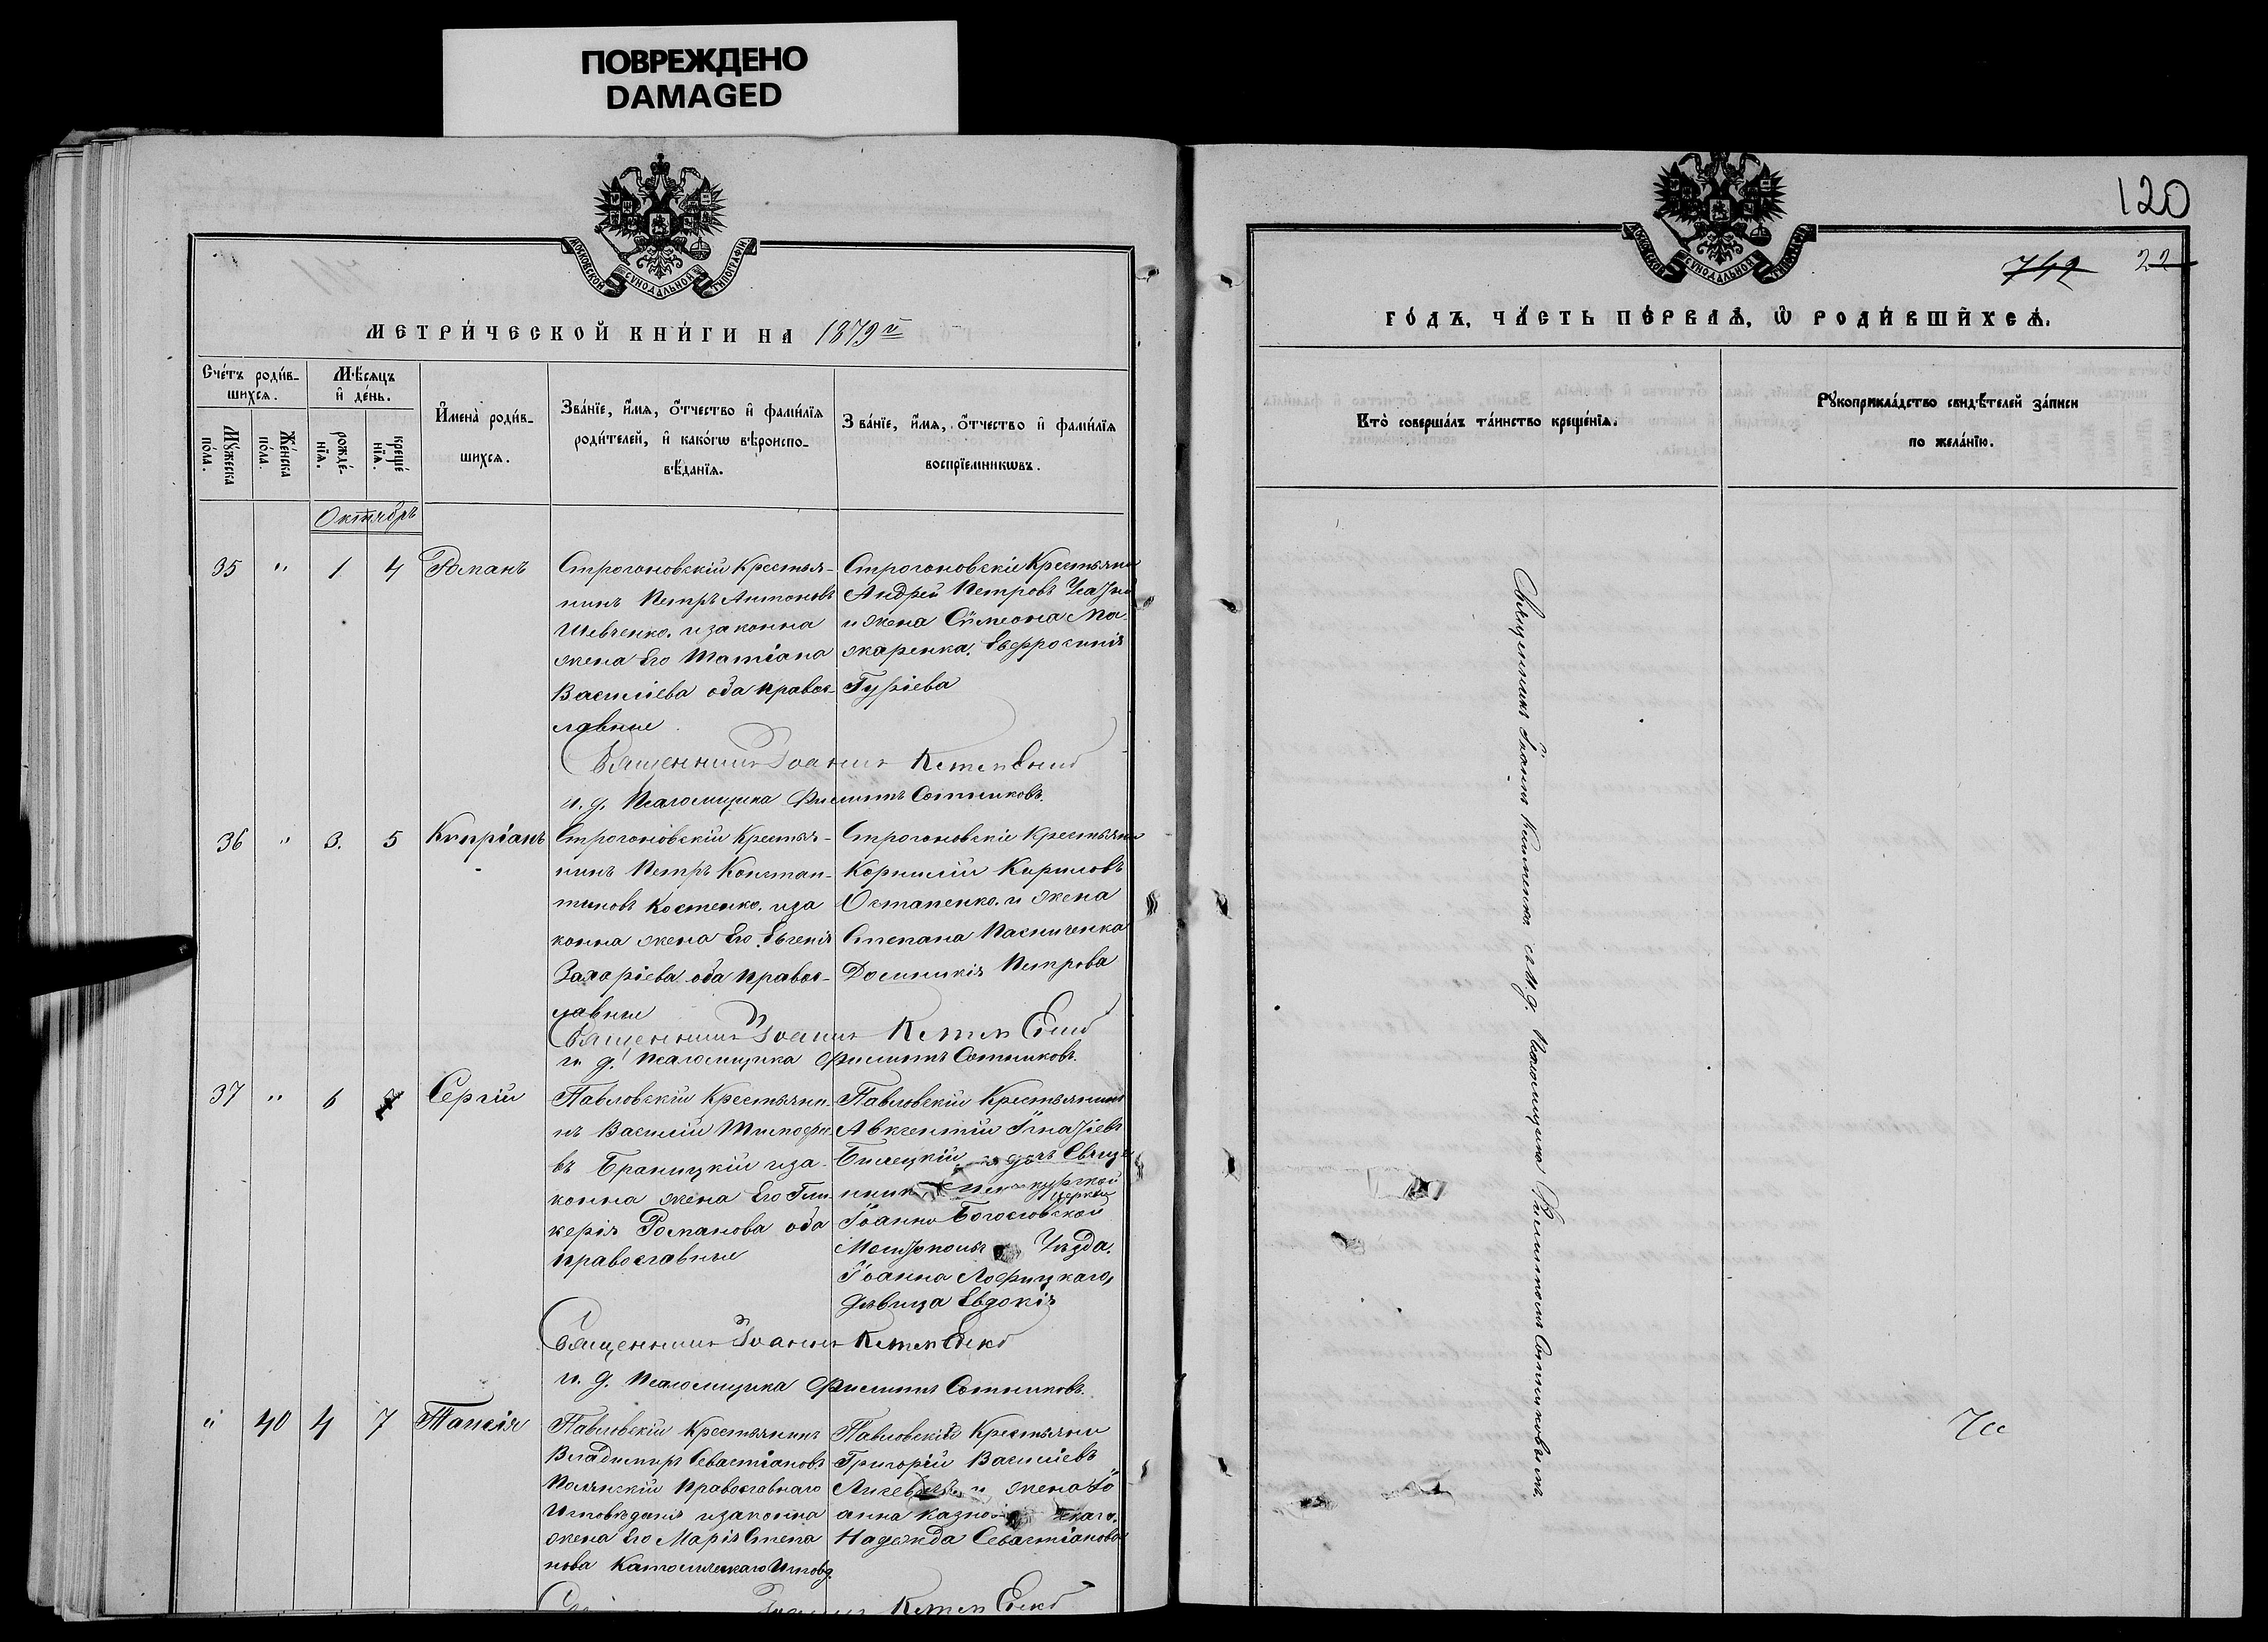 ПОВРЕЖДЕНО
DAMAGED
МОСКОВСКОЙ СѴНОДАЛЬНОЙ ТИПОГРАФІИ
МЕТРИ́ЧЕСКОЙ КНИ́ГИ НА 1879й
Сче́тъ роди́в-
шихся.
Мѣ́сяцъ
и҆ де́нь.
Мꙋ́жеска
по́ла.
Же́нска
по́ла.
рожде́-
нїѧ.
креще́
нїѧ.
И҆мена̀ роди́в-
шихсѧ.
Зва́нїе, и҆́мя, ѻ҆́тчество и҆ фамі́лїя
роди́телей, и҆ како́гѡ вѣроиспо-
вѣ́данїя.
Зва́нїе, и҆́мя, ѻ҆́тчество и҆ фамі́лїя
воспрїе́мникѡвъ.
Октябрь
35 " 1 4 Романъ
Строгоновскій Крестья-
нинъ Петръ Антоновъ
Шевченко. и законна
жена Его Татіана
Василіева оба правос-
лавные
Строгоновскіе Крестьяни
Андрей Петровъ
и жена Симеона Ма-
каренка. Евфросинія
Гуріева
Священникъ Іоаннъ
и. д. Псаломщика Филиппъ Сотниковъ.
36 " 3. 5 Кипріанъ
Строгоновскій Крестья-
нинъ Петръ Констан-
тиновъ Костенко. и за
конна жена Его. Евгенія
Захаріева оба правос-
лавные
Строгоновскіе Крестьяни
Корнилій Кириловъ
Остапенко. и жена
Степана Пасниченка
Домникія Петрова
Священникъ Іоаннъ
и. д. Псаломщика Филиппъ Сотниковъ.
37 " 6 7 Сергій
Павловскій Крестьяни-
нъ Василій Тимофе
въ Браницкій и за-
конна жена Его Гли-
керія Романова оба
православные
Павловскій Крестьянинъ
Авксентій Игнатіевъ
Билецкій и дочь Свяще
нника
церкви
Іоанно Богословской
Уѣзда.
Іоанна Лофицкаго,
дѣвица Евдокія
Священникъ Іоаннъ
и. д. Псаломщика Филиппъ Сотниковъ.
" 40 4 7 Таисія
Павловскій Крестьянинъ
Владимиръ Севастіановъ
Полянскій Православнаго
Исповѣданія и законна
жена Его Марія Степа
нова Католическаго Испов.
Павловскій Крестьяни
Григорій Василіевъ
и жена Іо
анна
Надежда Севастіанова
120
742 22
ГО́ДЪ, ЧА́СТЬ ПЕ́РВАѦ, Ѡ҆ РОДИ́ВШИХСѦ.
Кто̀ соверша́лъ та́инство креще́нїѧ.
Рꙋкоприкла́дство свидѣ́телей за́писи
по жела́нїю.
Священникъ Іоаннъ съ И. д. Псаломщика Филиппомъ Сотниковымъ.